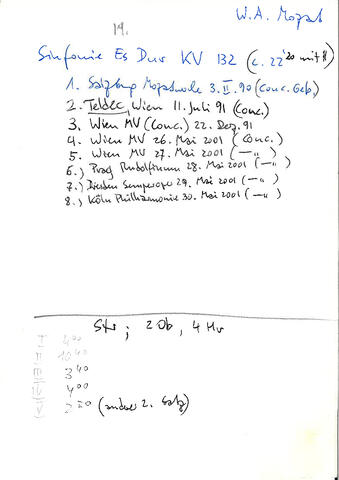 W.A. Mozart
19.
Sinfonie Es Dur KV 132 (c. 22'20 mit
1. Salzburg Mozartwoche 3. II. 90 (Conc. Geb)
2. Teldec, Wien 11. Juli 91 (Conc.)
3. Wien MV (Conc.) 22. Dez. 91
4. Wien MV 26. Mai 2001 (Conc.)
5. Wien MV 27. Mai 2001 (—„—)
6.) Prag Rudolfinum 28. Mai 2001 (—„—)
7.) Dresden Semperoper 29. Mai 2001 (—„—)
8.) Köln Philharmonie 30. Mai 2001 (—„—)
Str; 2 Ob, 4 Hr
I 4 00
II 10 40
3 40
4 00
2 20 (anderer 2. Satz)